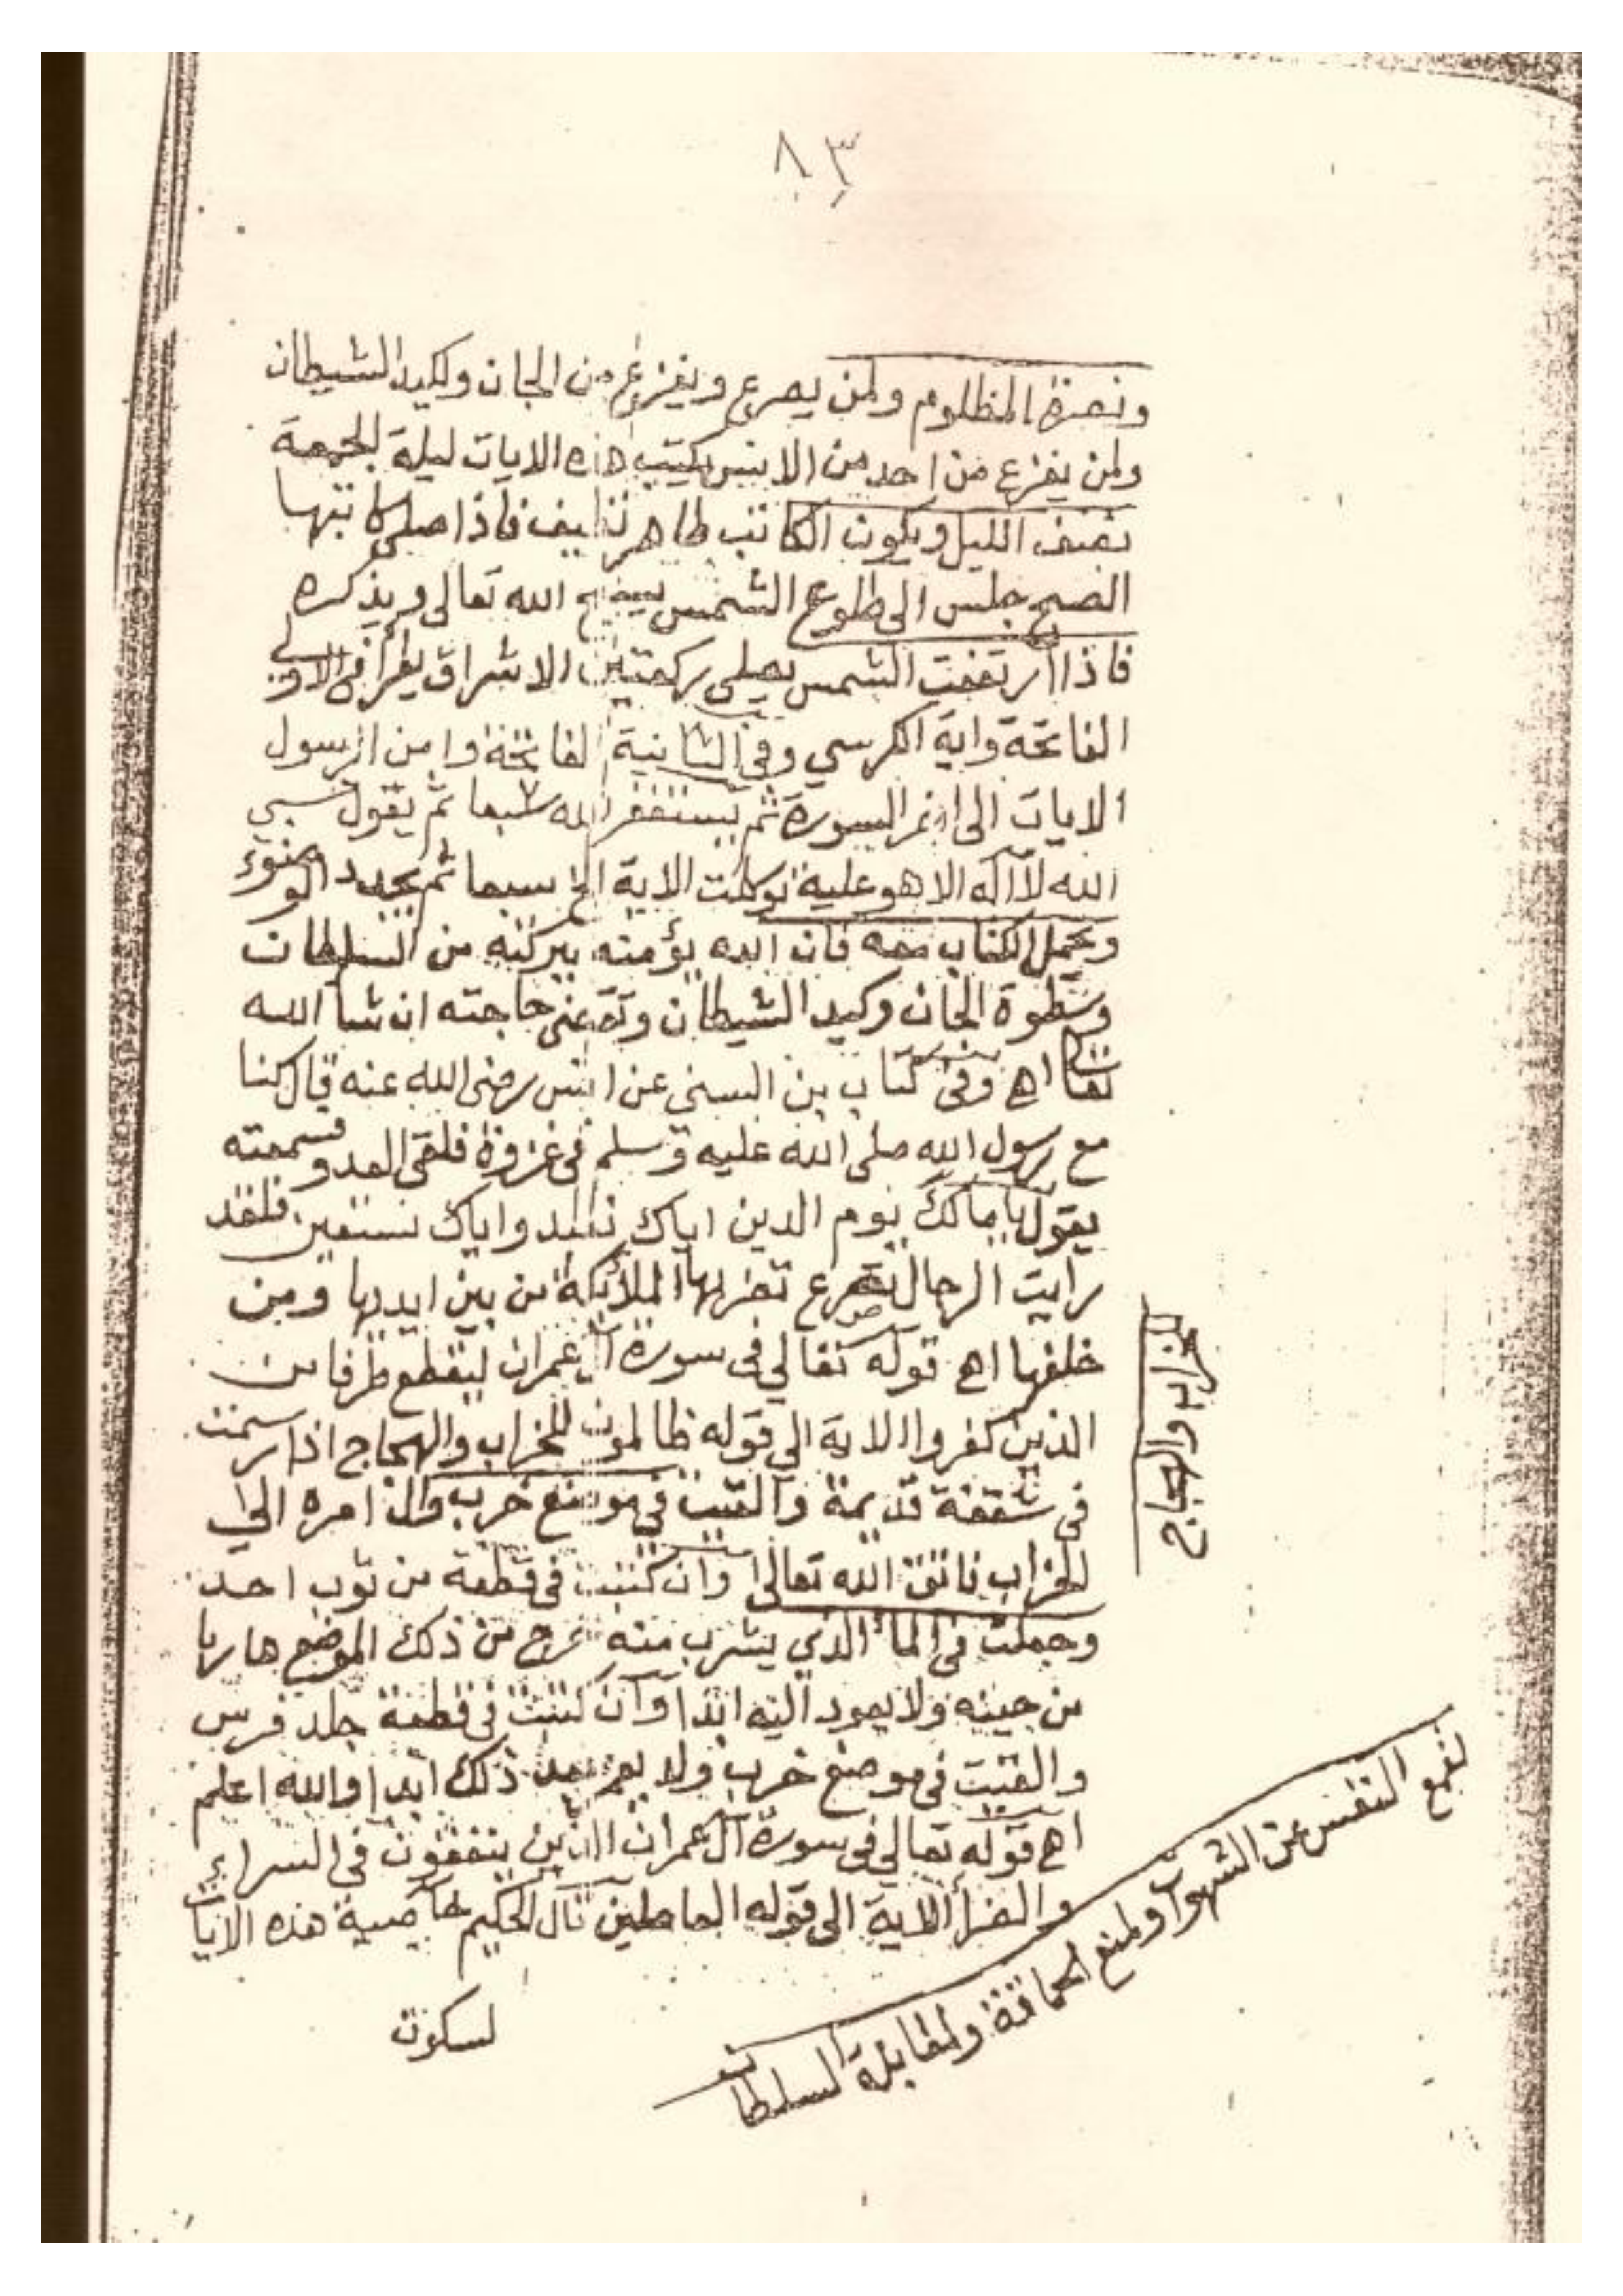 ٨٣
ونصرة المظلوم ولمن يصرع ويفزع من الجان ولكيد الشيطان
ولمن يفزع من احد من الانس يكتب هذه الايات ليلة الجمعة
نصف الليل ويكون الكاتب طاهر نظيف فاذا صلى كاتبها
الصبح جلس الى طلوع الشمس يسبح الله تعالى ويذكره
فاذا ارتفعت الشمس يصلى ركعتين الاشراق يقرأ فى الاولى
الفاتحة واية الكرسي وفى الثانية الفاتحة وامن الرسول
الايات الى اخر السورة ثم يستغفر الله سبعا ثم يقول حسبي
الله لا اله الا هو عليه توكلت الاية الخ سبعا ثم يجدد الوضوء
ويحمل الكتاب معه فان الله يؤمنه ببركته من السلطان
وسطوة الجان وكيد الشيطان وتقضى حاجته ان شا الله
تعالى اهـ وفى كتاب بن السنى عن انس رضى الله عنه قال كنا
مع رسول الله صلى الله عليه وسلم فى غزوة فلقى العدو فسمعته
يقول يا مالك يوم الدين اياك نعبد واياك نستعين فلقد
رايت الرجال تصرع تضربها الملائكة من بين ايديها ومن
خلفها اهـ قوله تعالي فى سورة آل عمران ليقطع طرفا من
الذين كفروا الاية الى قوله ظالمون للخراب والهجاج اذا رسمت
فى شقفة قديمة والقيت في موضع خرب وال امره الي
الخراب فاتق الله تعالى وان كتبت فى قطعة من ثوب احد
وجعلت فى الماء الذي يشرب منه خرج من ذلك الموضع هاربا
من حينه ولا يعود اليه ابدا وان كتبت فى قطعة جلد فرس
والقيت فى موضع خرب ولا يعمر بعد ذلك ابدا والله اعلم
اهـ قوله تعالي فى سورة آل عمران الذين ينفقون فى السراء
والضرأ الاية الى قوله العاملين قال الحكيم خاصية هذه الايات
لسكون
للخراب والهجاج
لقمع النفس عن الشهوات ولمنع الحماقة ولمقابلة السلطان